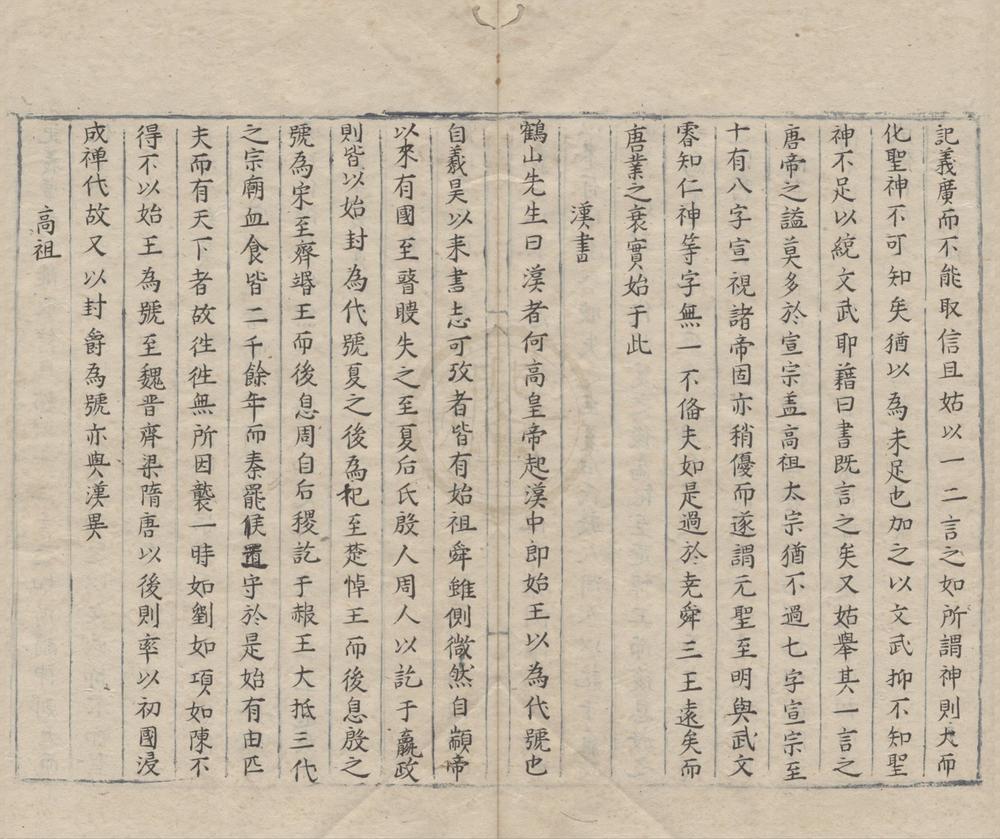 記義廣而不能取信且姑以一二言之如所謂神則大而
化聖神不可知矣猶以為未足也加之以文武抑不知聖
神不足以統文武耶藉曰書既言之矣又姑舉其一言之
唐帝之謚莫多於宣宗盖高祖太宗猶不過七字宣宗至
十有八字宣視諸帝固亦稍優而遂謂元聖至明與武文
睿知仁神等字無一不俻夫如是過於尭舜三王遠矣而
唐業之衰實始于此
漢書
鶴山先生曰漢者何高皇帝起漢中即始王以為代號也
自羲昊以来書志可攷者皆有始祖舜雖側微然自顓帝
以來有國至瞽瞍失之至夏后氏殷人周人以訖于嬴政
則皆以始封為代號夏之後為杞至楚悼王而後息殷之
號為宋至齊湣王而後息周自后稷訖于赧王大抵三代
之宗廟血食皆二千餘年而秦罷侯置守於是始有由匹
夫而有天下者故徃徃無所因襲一時如劉如項如陳不
得不以始王為號至魏晋齊梁隋唐以後則率以初國浸
成禅代故又以封爵為號亦與漢異
高祖